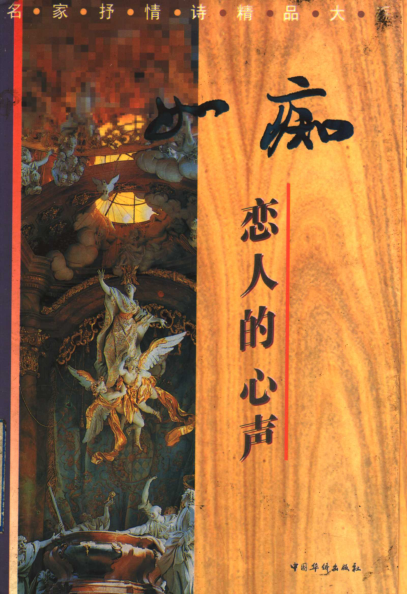 名·家·抒·情·诗·精·品·大·系
如痴
恋人的心声
中国华侨出版社